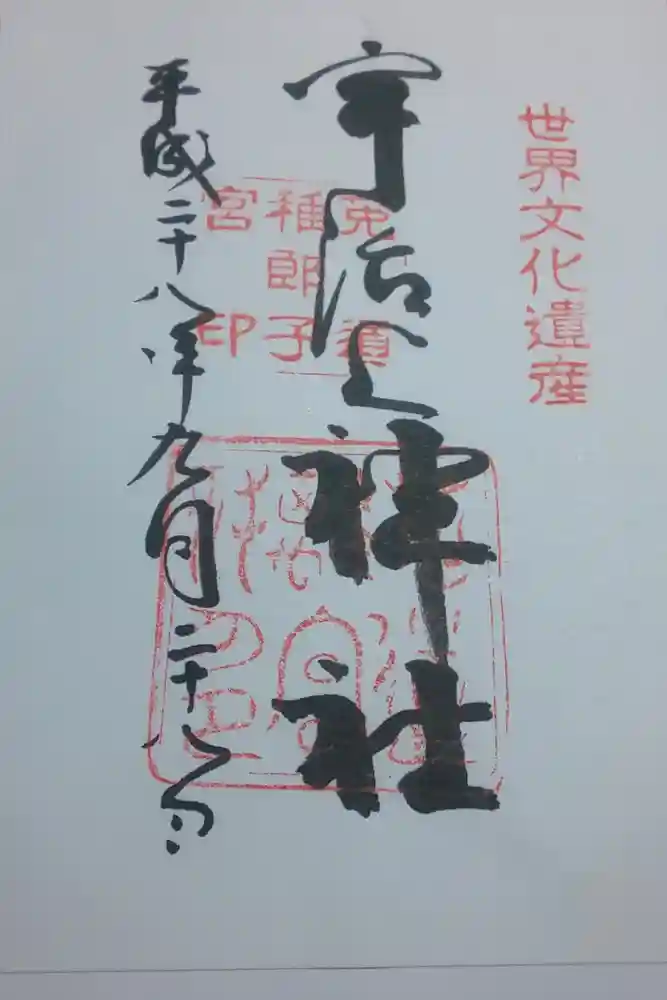 世界文化遺産
宇治上神社
菟須
稚郎子
宮印
平成二十八年九月二十八日